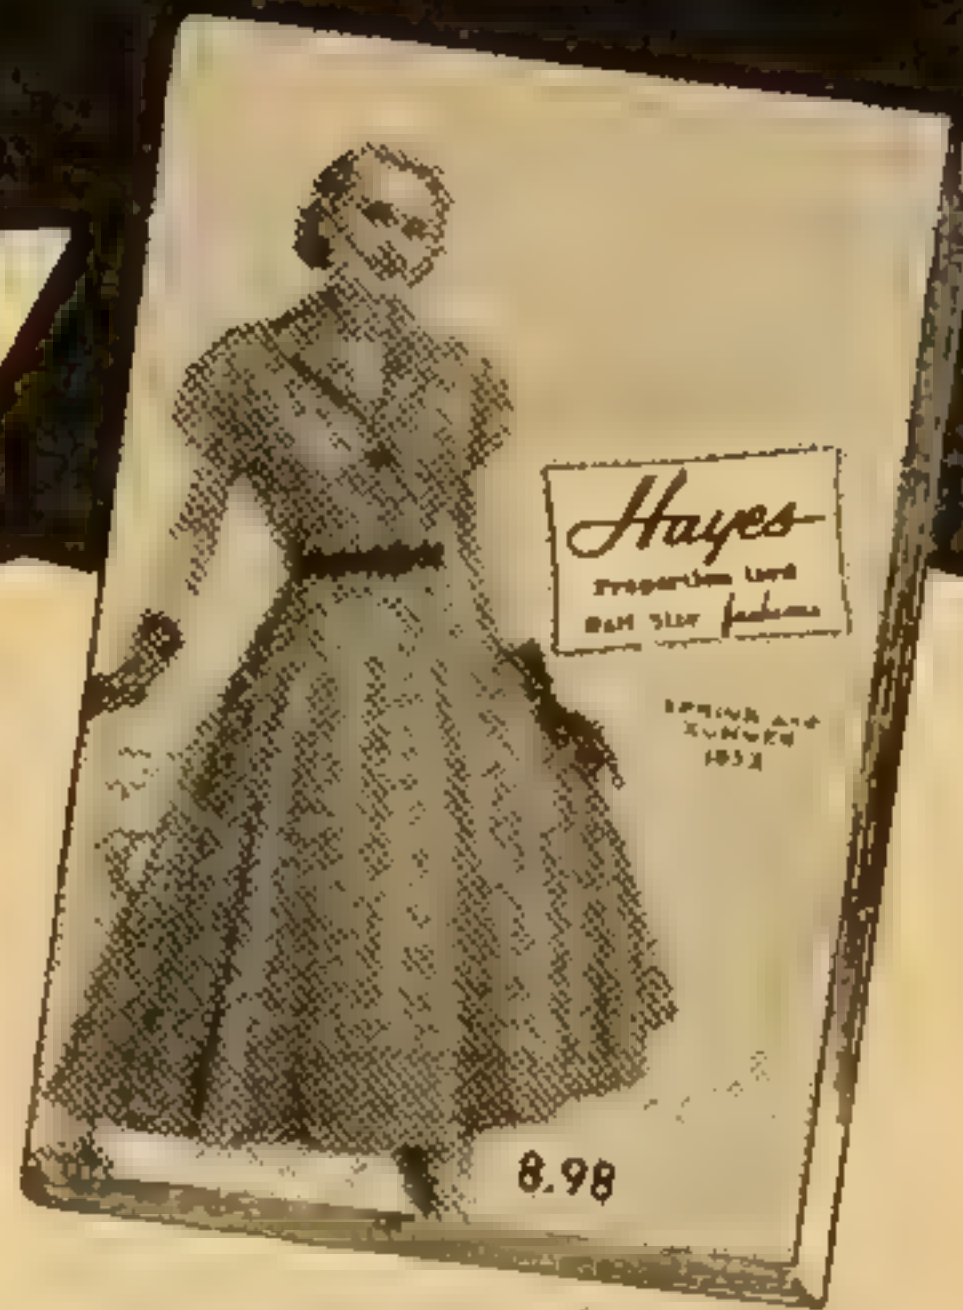 Hayes
Proportion ized
Half Size fashions
SPRING AND
SUMMER
8.98